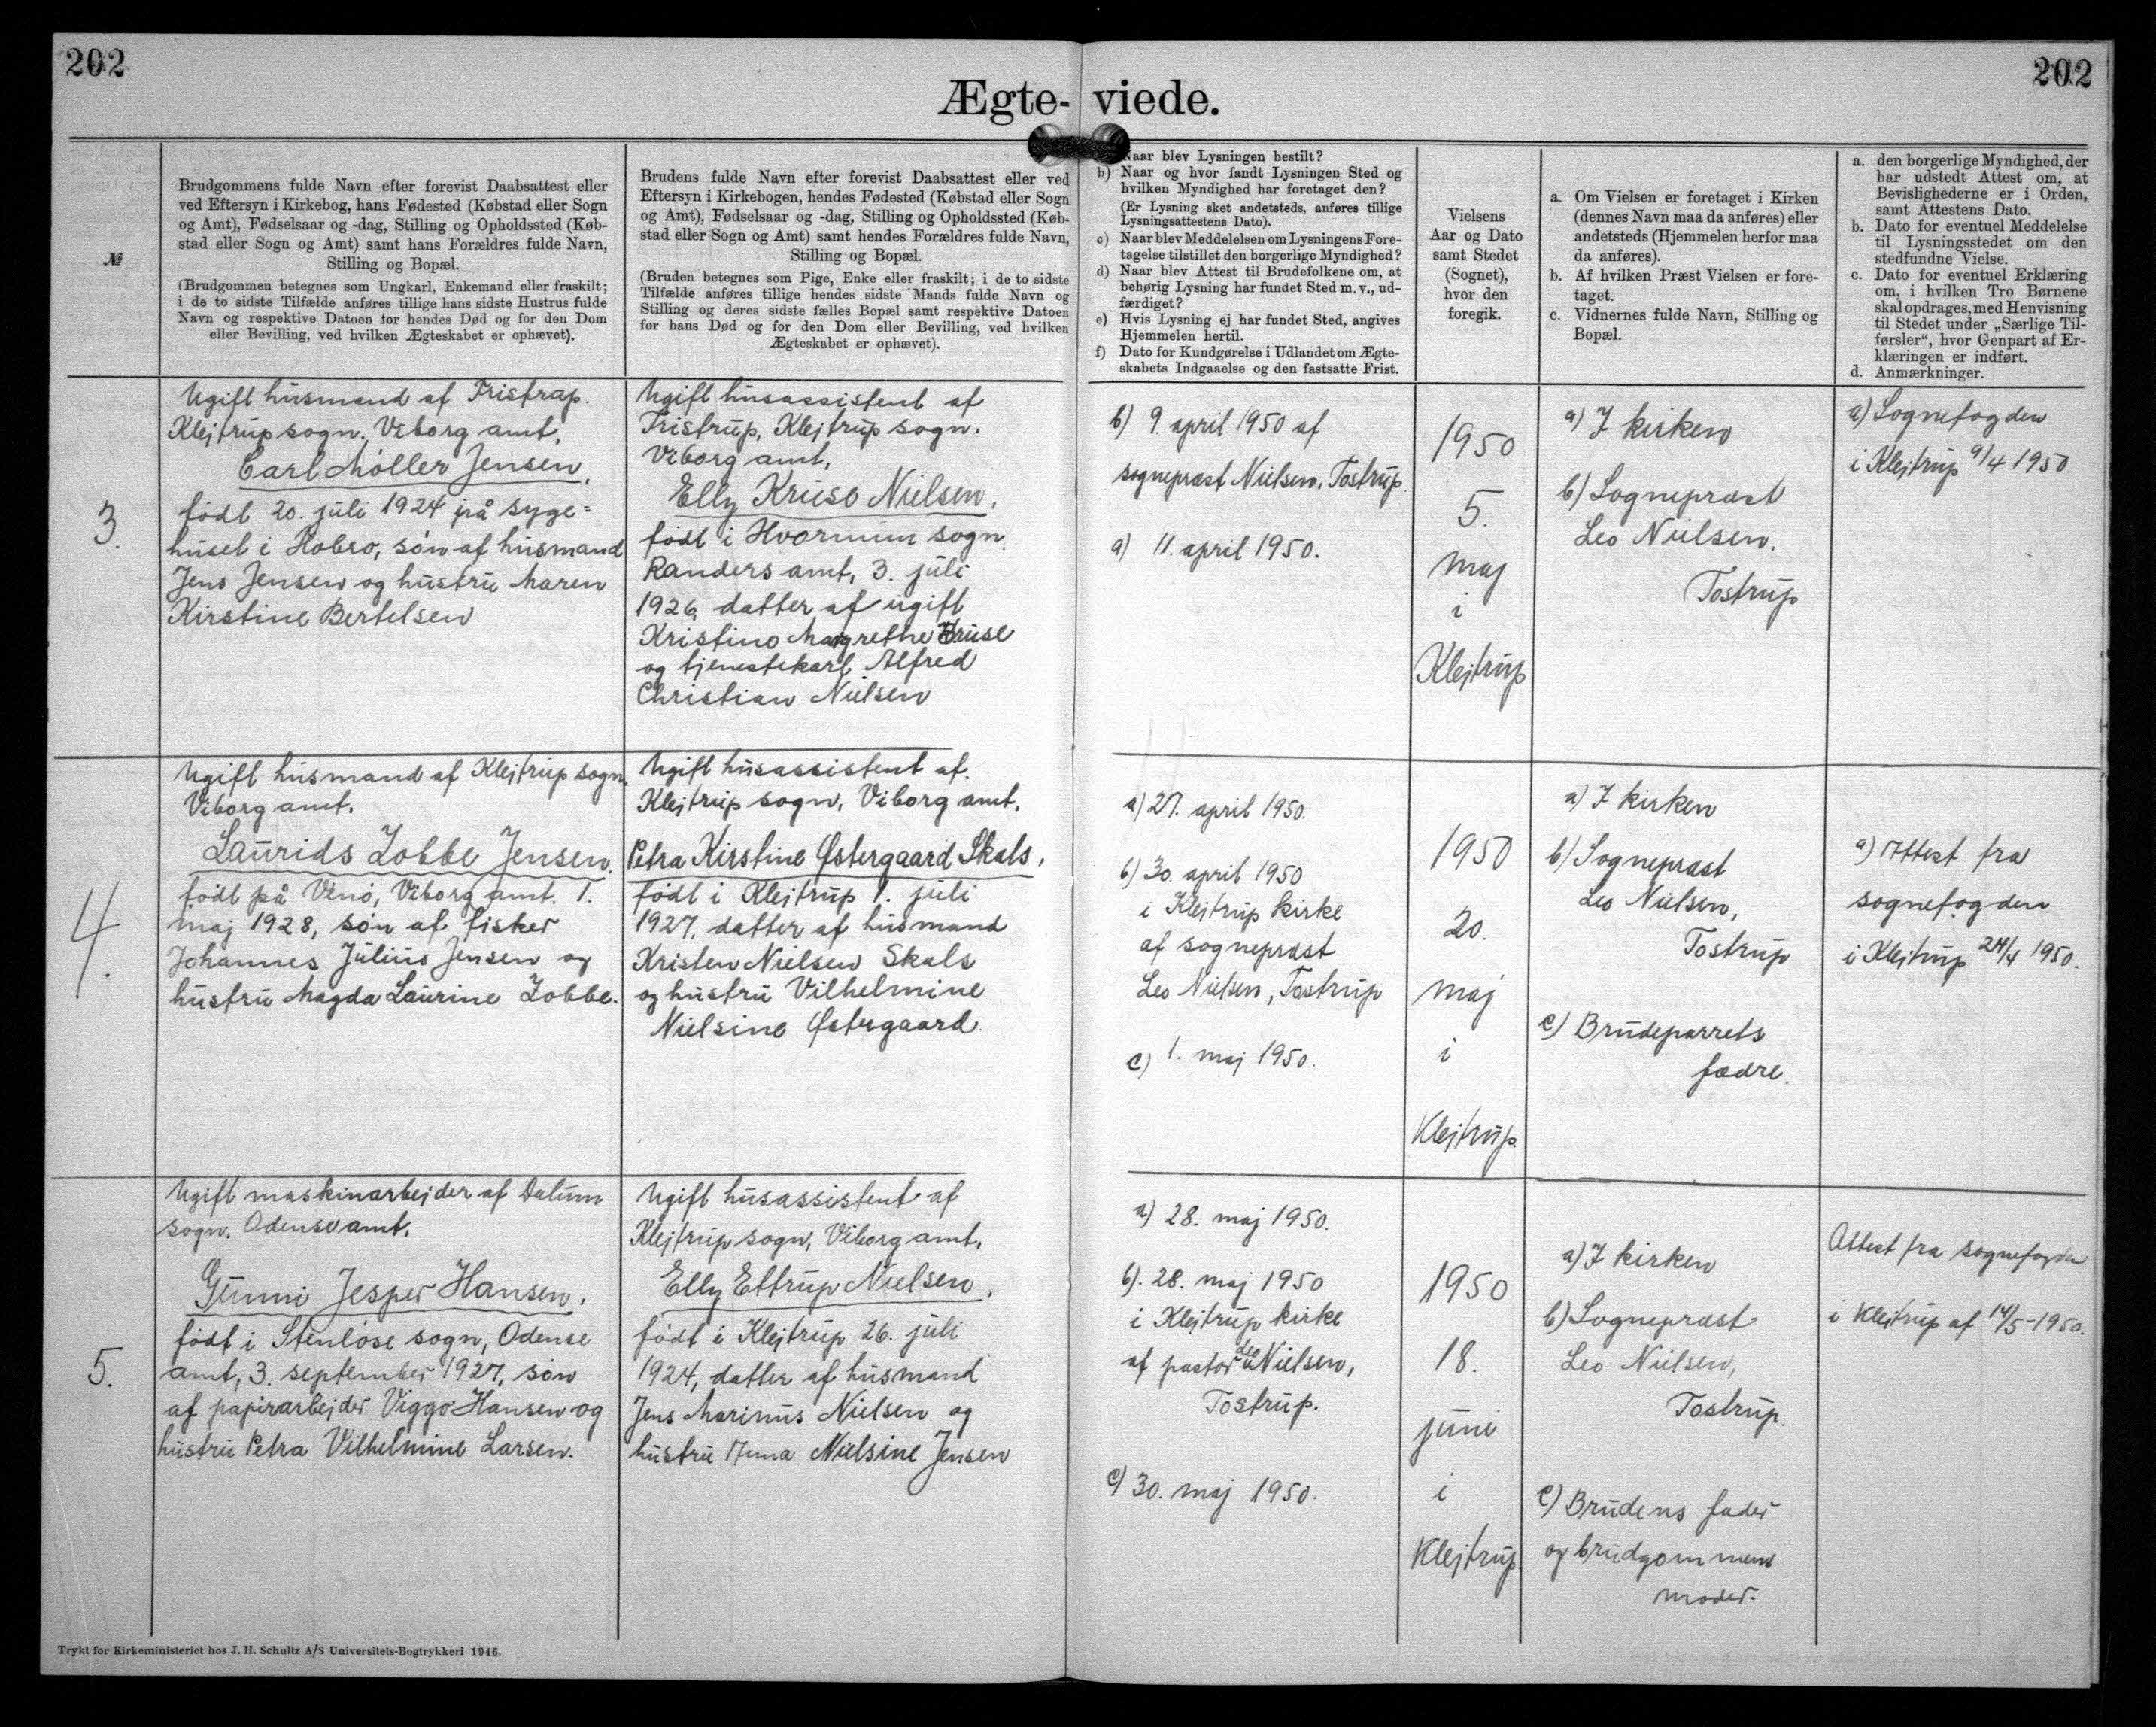 202
202
Ægte- viede.
№
Brudgommens fulde Navn efter forevist Daabsattest eller
ved Eftersyn i Kirkebog, hans Fødested (Købstad eller Sogn
og Amt), Fødselsaar og -dag, Stilling og Opholdssted (Køb-
stad eller Sogn og Amt) samt hans Forældres fulde Navn,
Stilling og Bopæl.
(Brudgommen betegnes som Ungkarl, Enkemand eller fraskilt;
i de to sidste Tilfælde anføres tillige hans sidste Hustrus fulde
Navn og respektive Datoen for hendes Død og for den Dom
eller Bevilling, ved hvilken Ægteskabet er ophævet).
Brudens fulde Navn efter forevist Daabsattest eller ved
Eftersyn i Kirkebogen, hendes Fødested (Købstad eller Sogn
og Amt), Fødselsaar og -dag, Stilling og Opholdssted (Køb-
stad eller Sogn og Amt) samt hendes Forældres fulde Navn,
Stilling og Bopæl.
(Bruden betegnes som Pige, Enke eller fraskilt; i de to sidste
Tilfælde anføres tillige hendes sidste Mands fulde Navn og
Stilling og deres sidste fælles Bopæl samt respektive Datoen
for hans Død og for den Dom eller Bevilling, ved hvilken
Ægteskabet er ophævet).
Naar blev Lysningen bestilt?
b) Naar og hvor fandt Lysningen Sted og
hvilken Myndighed har foretaget den?
(Er Lysning sket andetsteds, anføres tillige
Lysningsattestens Dato).
c) Naar blev Meddelelsen om Lysningens Fore-
tagelse tilstillet den borgerlige Myndighed?
d) Naar blev Attest til Brudefolkene om, at
behørig Lysning har fundet Sted m. v., ud-
færdiget?
e) Hvis Lysning ej har fundet Sted, angives
Hjemmelen hertil.
f) Dato for Kundgørelse i Udlandet om Ægte-
skabets Indgaaelse og den fastsatte Frist.
Vielsens
Aar og Dato
samt Stedet
(Sognet),
hvor den
foregik.
a. Om Vielsen er foretaget i Kirken
(dennes Navn maa da anføres) eller
andetsteds (Hjemmelen herfor maa
da anføres).
b. Af hvilken Præst Vielsen er fore-
taget.
c. Vidnernes fulde Navn, Stilling og
Bopæl.
a. den borgerlige Myndighed, der
har udstedt Attest om, at
Bevislighederne er i Orden,
samt Attestens Dato.
b. Dato for eventuel Meddelelse
til Lysningsstedet om den
stedfundne Vielse.
c. Dato for eventuel Erklæring
om, i hvilken Tro Børnene
skal opdrages, med Henvisning
til Stedet under „Særlige Til-
førsler“, hvor Genpart af Er-
klæringen er indført.
d. Anmærkninger.
3.
Ugift husmand af Tristrup.
Klejtrup sogn. Viborg amt.
Carl Møller Jensen,
født 20. juli 1924 på syge=
huset i Hobro, søn af husmand
Jens Jensen og hustru Maren
Kirstine Bertelsen
Ugift husassistent af
Tristrup, Klejtrup sogn.
Viborg amt,
Elly Kruse Nielsen,
født i Hvornum sogn,
Randers amt, 3. juli
1926, datter af ugift
Kristine Magrethe Kruse
og tjenestekarl Alfred
Christian Nielsen
b) 9. april 1950 af
sognepræst Nielsen, Tostrup
a) 11. april 1950.
1950
5.
maj
i
Klejtrup
a) I kirken
b) Sognepræst
Leo Nielsen.
Tostrup
a) Sognefogden
i Klejtrup 9/4 1950
4.
Ugift husmand af Klejtrup sogn,
Viborg amt.
Laurids Lobbe Jensen,
født på Venø, Viborg amt. 1.
maj 1928, søn af fisker
Johannes Julius Jensen og
hustru Magda Laurine Lobbe.
Ugift husassistent af.
Klejtrup sogn, Viborg amt.
Petra Kirstine Østergaard Skals,
født i Klejtrup 1. juli
1927, datter af husmand
Kristen Nielsen Skals
og hustru Vilhelmine
Nielsine Østergaard
a) 27. april 1950.
b) 30. april 1950
i Klejtrup kirke
af sognepræst
Leo Nielsen, Tostrup
c) 1. maj 1950.
1950
20.
maj
i
Klejtrup.
a) I kirken
b) Sognepræst
Leo Nielsen,
Tostrup
c) Brudeparrets
fædre.
a) Attest fra
sognefogden
i Klejtrup 24/4 1950.
5.
Ugift maskinarbejder af Dalum
sogn, Odense amt.
Gunni Jesper Hansen,
født i Stenløse sogn, Odense
amt, 3. september 1927, søn
af papirarbejder Viggo Hansen og
hustru Petra Vilhelmine Larsen.
Ugift husassistent af
Klejtrup sogn, Viborg amt,
Elly Ettrup Nielsen,
født i Klejtrup 26. juli
1924, datter af husmand
Jens Marinus Nielsen og
hustru Anna Nielsine Jensen
a) 28. maj 1950.
b). 28. maj 1950
i Klejtrup kirke
af pastor Leo Nielsen,
Tostrup.
c) 30. maj 1950.
1950
18.
juni
i
Klejtrup.
a) I kirken
b) Sognepræst
Leo Nielsen,
Tostrup.
c) Brudens fader
og brudgommens
moder.
Attest fra sognefogden
i Klejtrup af 14/5-1950.
Trykt for Kirkeministeriet hos J. H. Schultz A/S Universitets-Bogtrykkeri 1946.